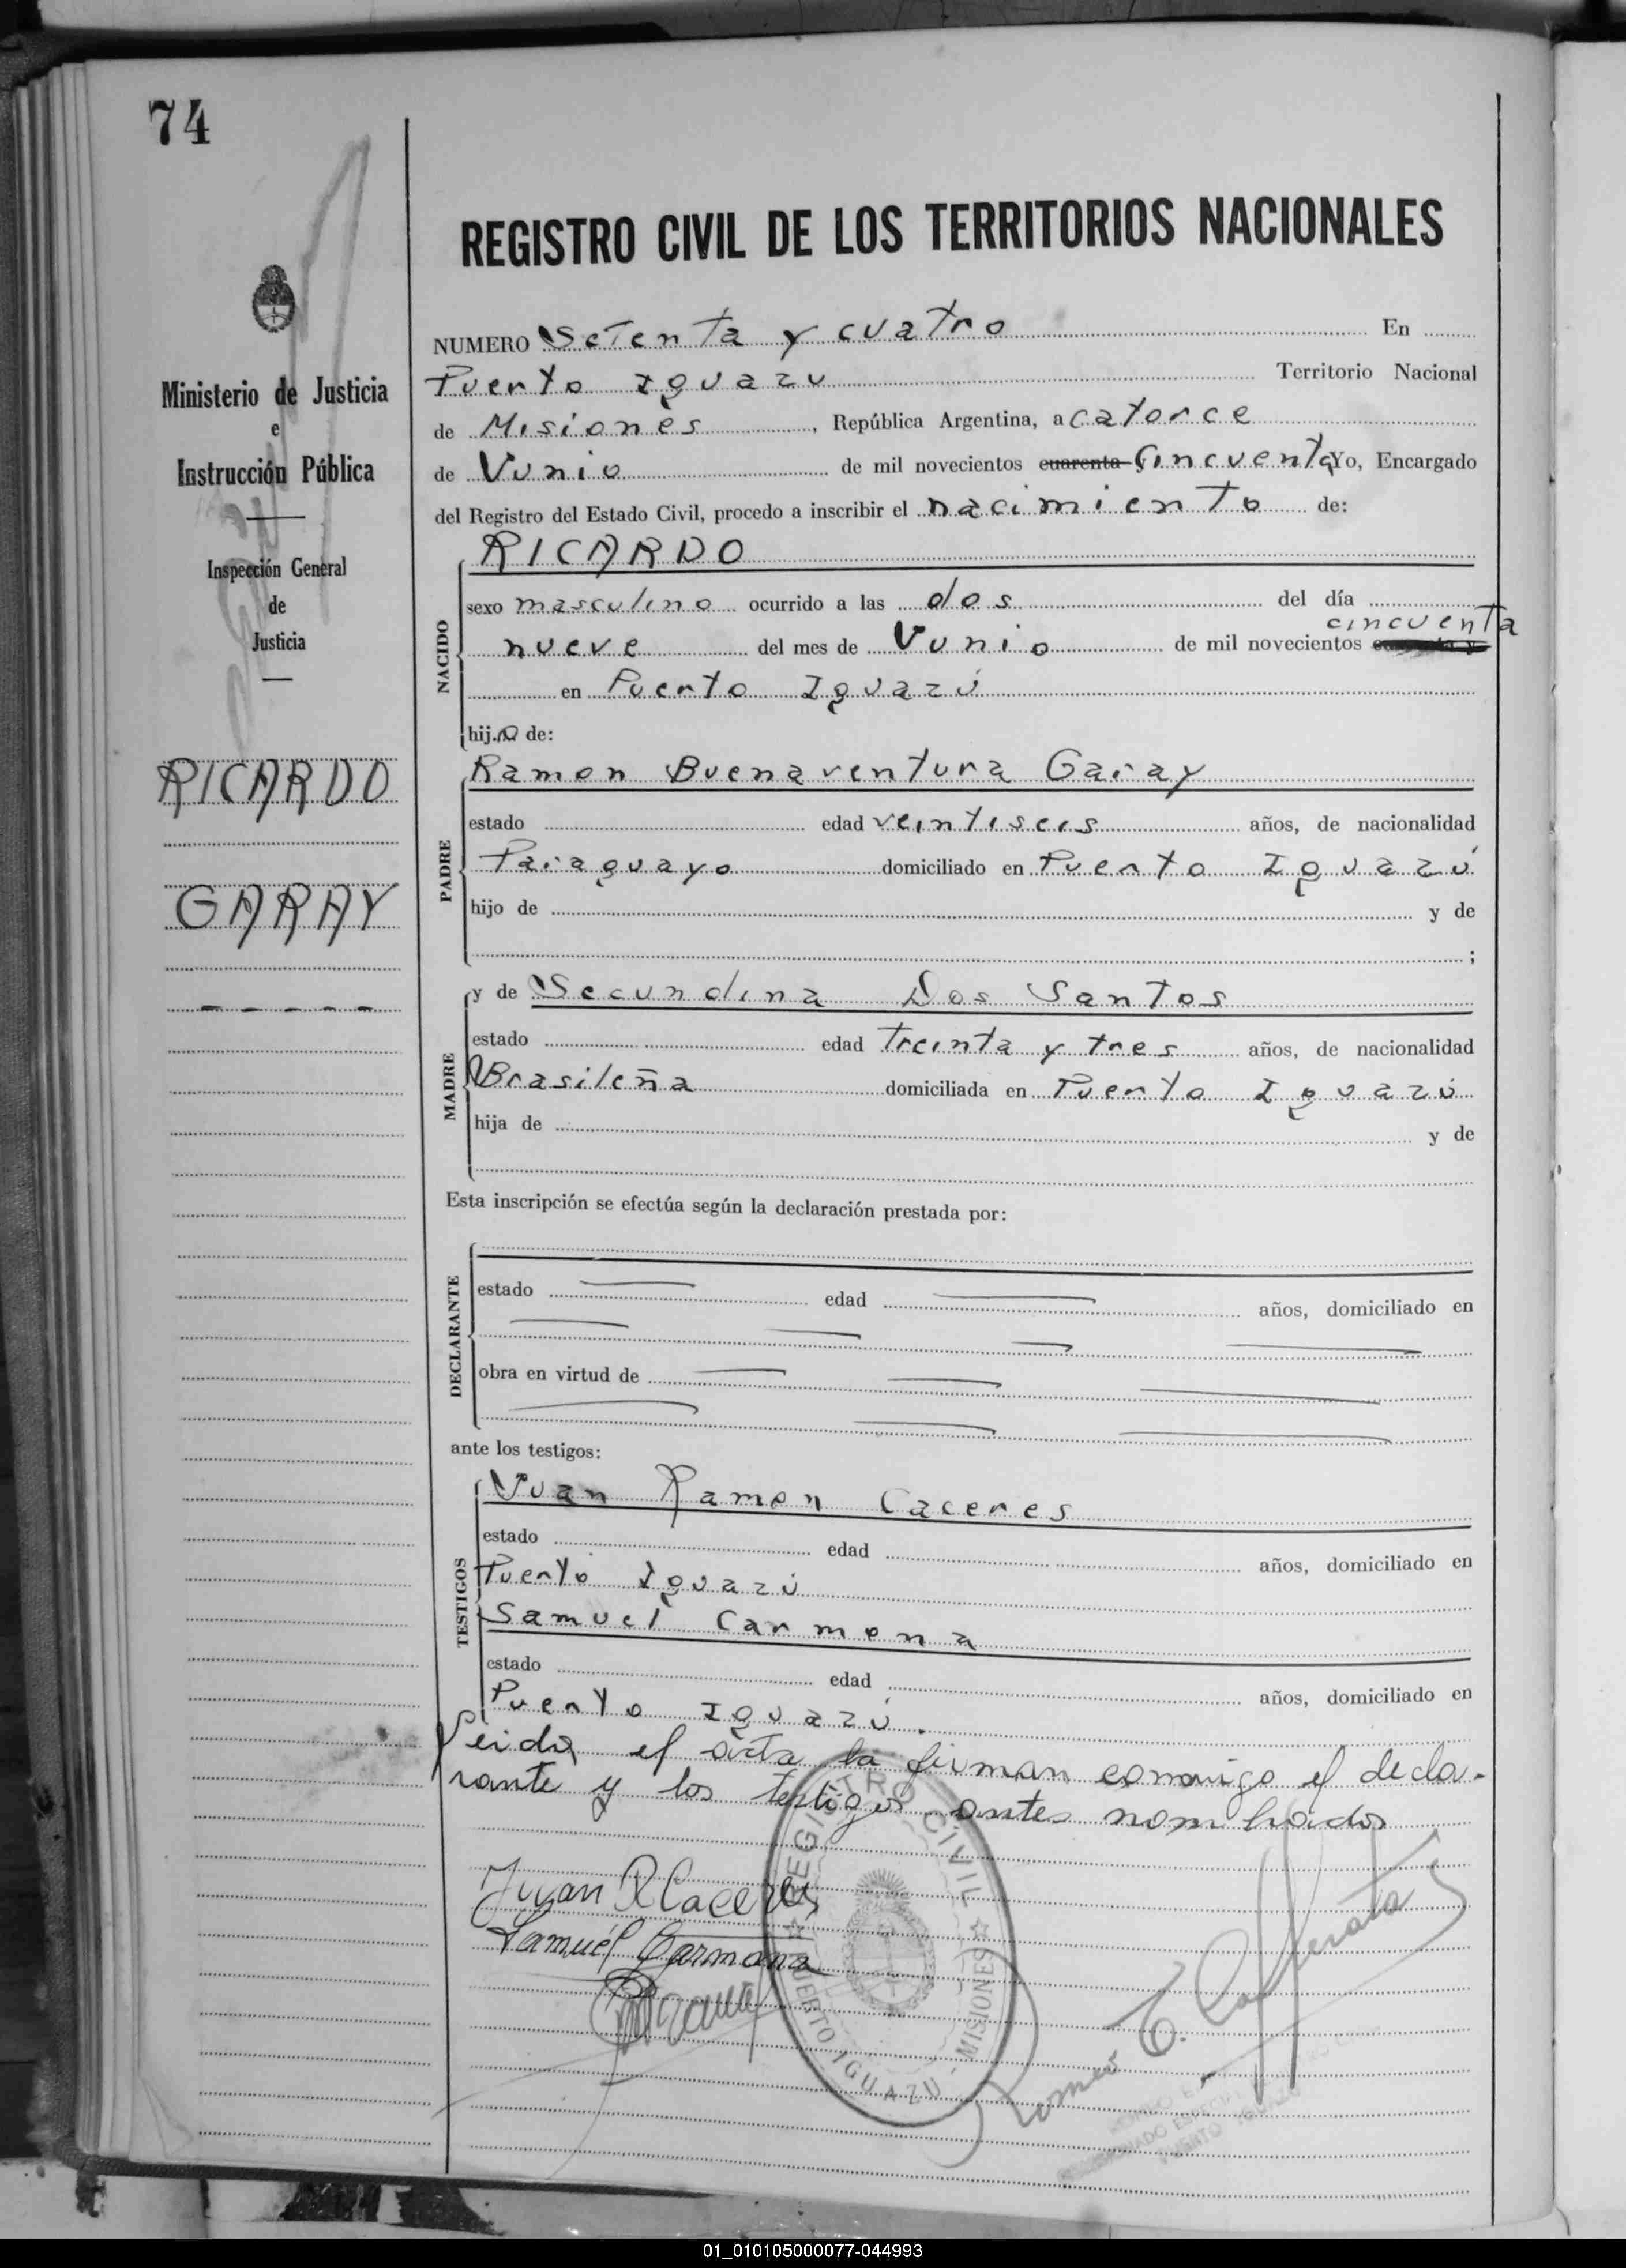 74
REGISTRO CIVIL DE LOS TERRITORIOS NACIONALES
Ministerio de Justicia
e
Instrucción Pública
Inspección General
de
Justicia
RICARDO
GARAY
NUMERO Setenta y cuatro En
Puerto Iguazu Territorio Nacional
de Misiones, República Argentina, a catorce
de Junio de mil novecientos cuarenta Cincuenta Yo, Encargado
del Registro del Estado Civil, procedo a inscribir el nacimiento de:
NACIDO
RICARDO
sexo masculino ocurrido a las dos del día
cincuenta
nueve del mes de Junio de mil novecientos
en Puerto Iguazú
hijo de:
PADRE
Ramon Buenaventura Garay
estado edad veintiseis años, de nacionalidad
Paraguayo domiciliado en Puerto Iguazú
hijo de y de
;
MADRE
y de Secundina Dos Santos
estado edad Treinta y tres años, de nacionalidad
Brasileña domiciliada en Puerto Iguazú
hija de y de
Esta inscripción se efectúa según la declaración prestada por:
DECLARANTE
estado edad años, domiciliado en
obra en virtud de
ante los testigos:
TESTIGOS
Juan Ramon Caceres
estado edad años, domiciliado en
Puerto Iguazú
Samuel Carmona
estado edad años, domiciliado en
Puerto Iguazú.
Leida el acta la firman conmigo el decla-
rante y los testigos antes nombrados
Juan R Caceres
Samuél Carmona
REGISTRO CIVIL
PUERTO IGUAZU - MISIONES
Romeo E. Cafferata
PUERTO IGUAZU
01_010105000077-044993